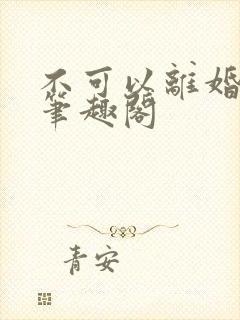 不可以離婚
筆趣閣
青安